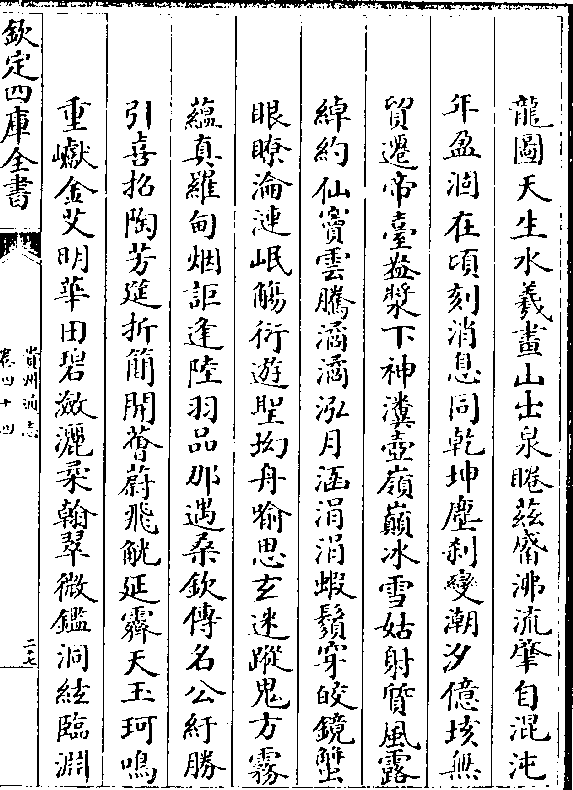 龍圖天生水羲畫山出泉睠茲觱沸流肇自混沌
年盈涸在頃刻消息同乾坤塵刹變潮汐億垓無
貿遷帝臺益漿下神瀵壺嶺巔冰雪姑射窅風露
綽約仙竇雲騰潏潏泓月涵涓涓蝦鬚穿皎鏡蟹
眼瞭淪漣岷觴衍遊聖拗舟喻思玄迷蹤鬼方霧
蘊真羅甸烟詎逢陸羽品那遇桑欽傳名公紆勝
引喜招陶芳筵折簡開薈蔚飛觥延霽天玉珂鳴
重巘金艾明華田碧澂灑柔翰翠微鑑洞紘臨淵
欽定四庫全書
貴州通志
卷四十四
二七